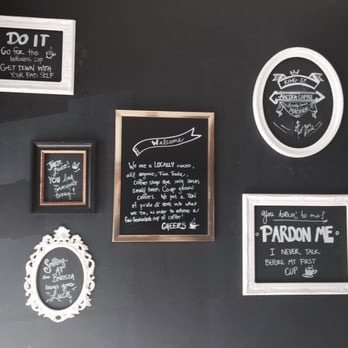 DO IT
GO FOR THE
bottomless CUP
GET DOWN WITH
YOUR BAD SELF
Welcome
WE are a LOCALLY owned,
all organic, Fair Trade,
coffee shop that only serves
small Batch Group growers
coffees. We put a TON
of pride & love into what
we do, in order to achieve a
cup of coffee!
CHEERS
KING ST.
COFFEE
YOU
LOOK
today!
Smiling
AT
the BARISTA
brings you
LUCK
You talkin' to me?
PARDON ME
I NEVER TALK
BEFORE MY FIRST
CUP